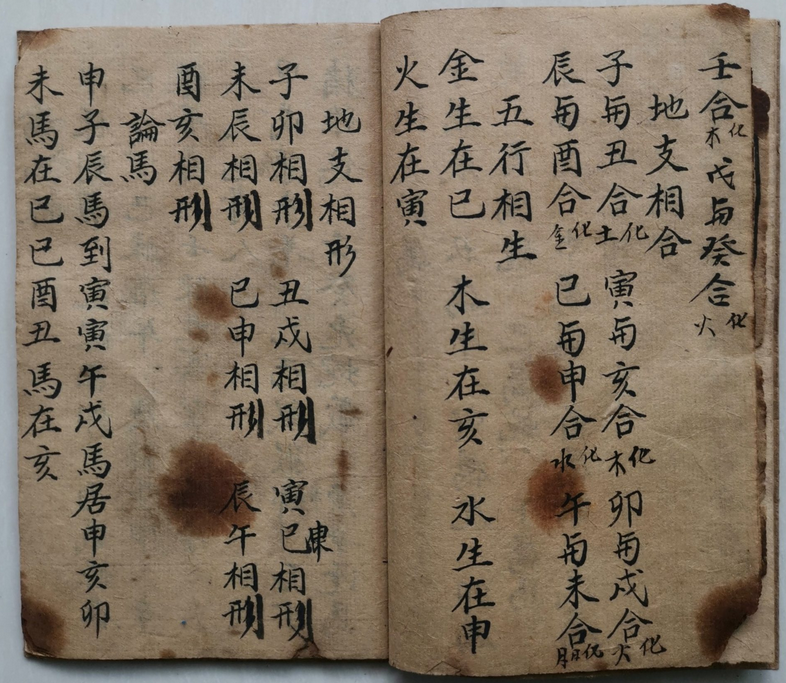 壬合化木戊与癸合化火
地支相合
子与丑合化土 寅与亥合化木 卯与戌合化火
辰与酉合化金 巳与申合化水 午与未合化日月
五行相生
金生在巳 木生在亥 水生在申
火生在寅
地支相形
子卯相刑 丑戌相刑 寅巳申相刑
未辰相刑 巳申相刑 辰午相刑
酉亥相刑
論馬
申子辰馬到寅寅午戌馬居申亥卯
未馬在巳巳酉丑馬在亥